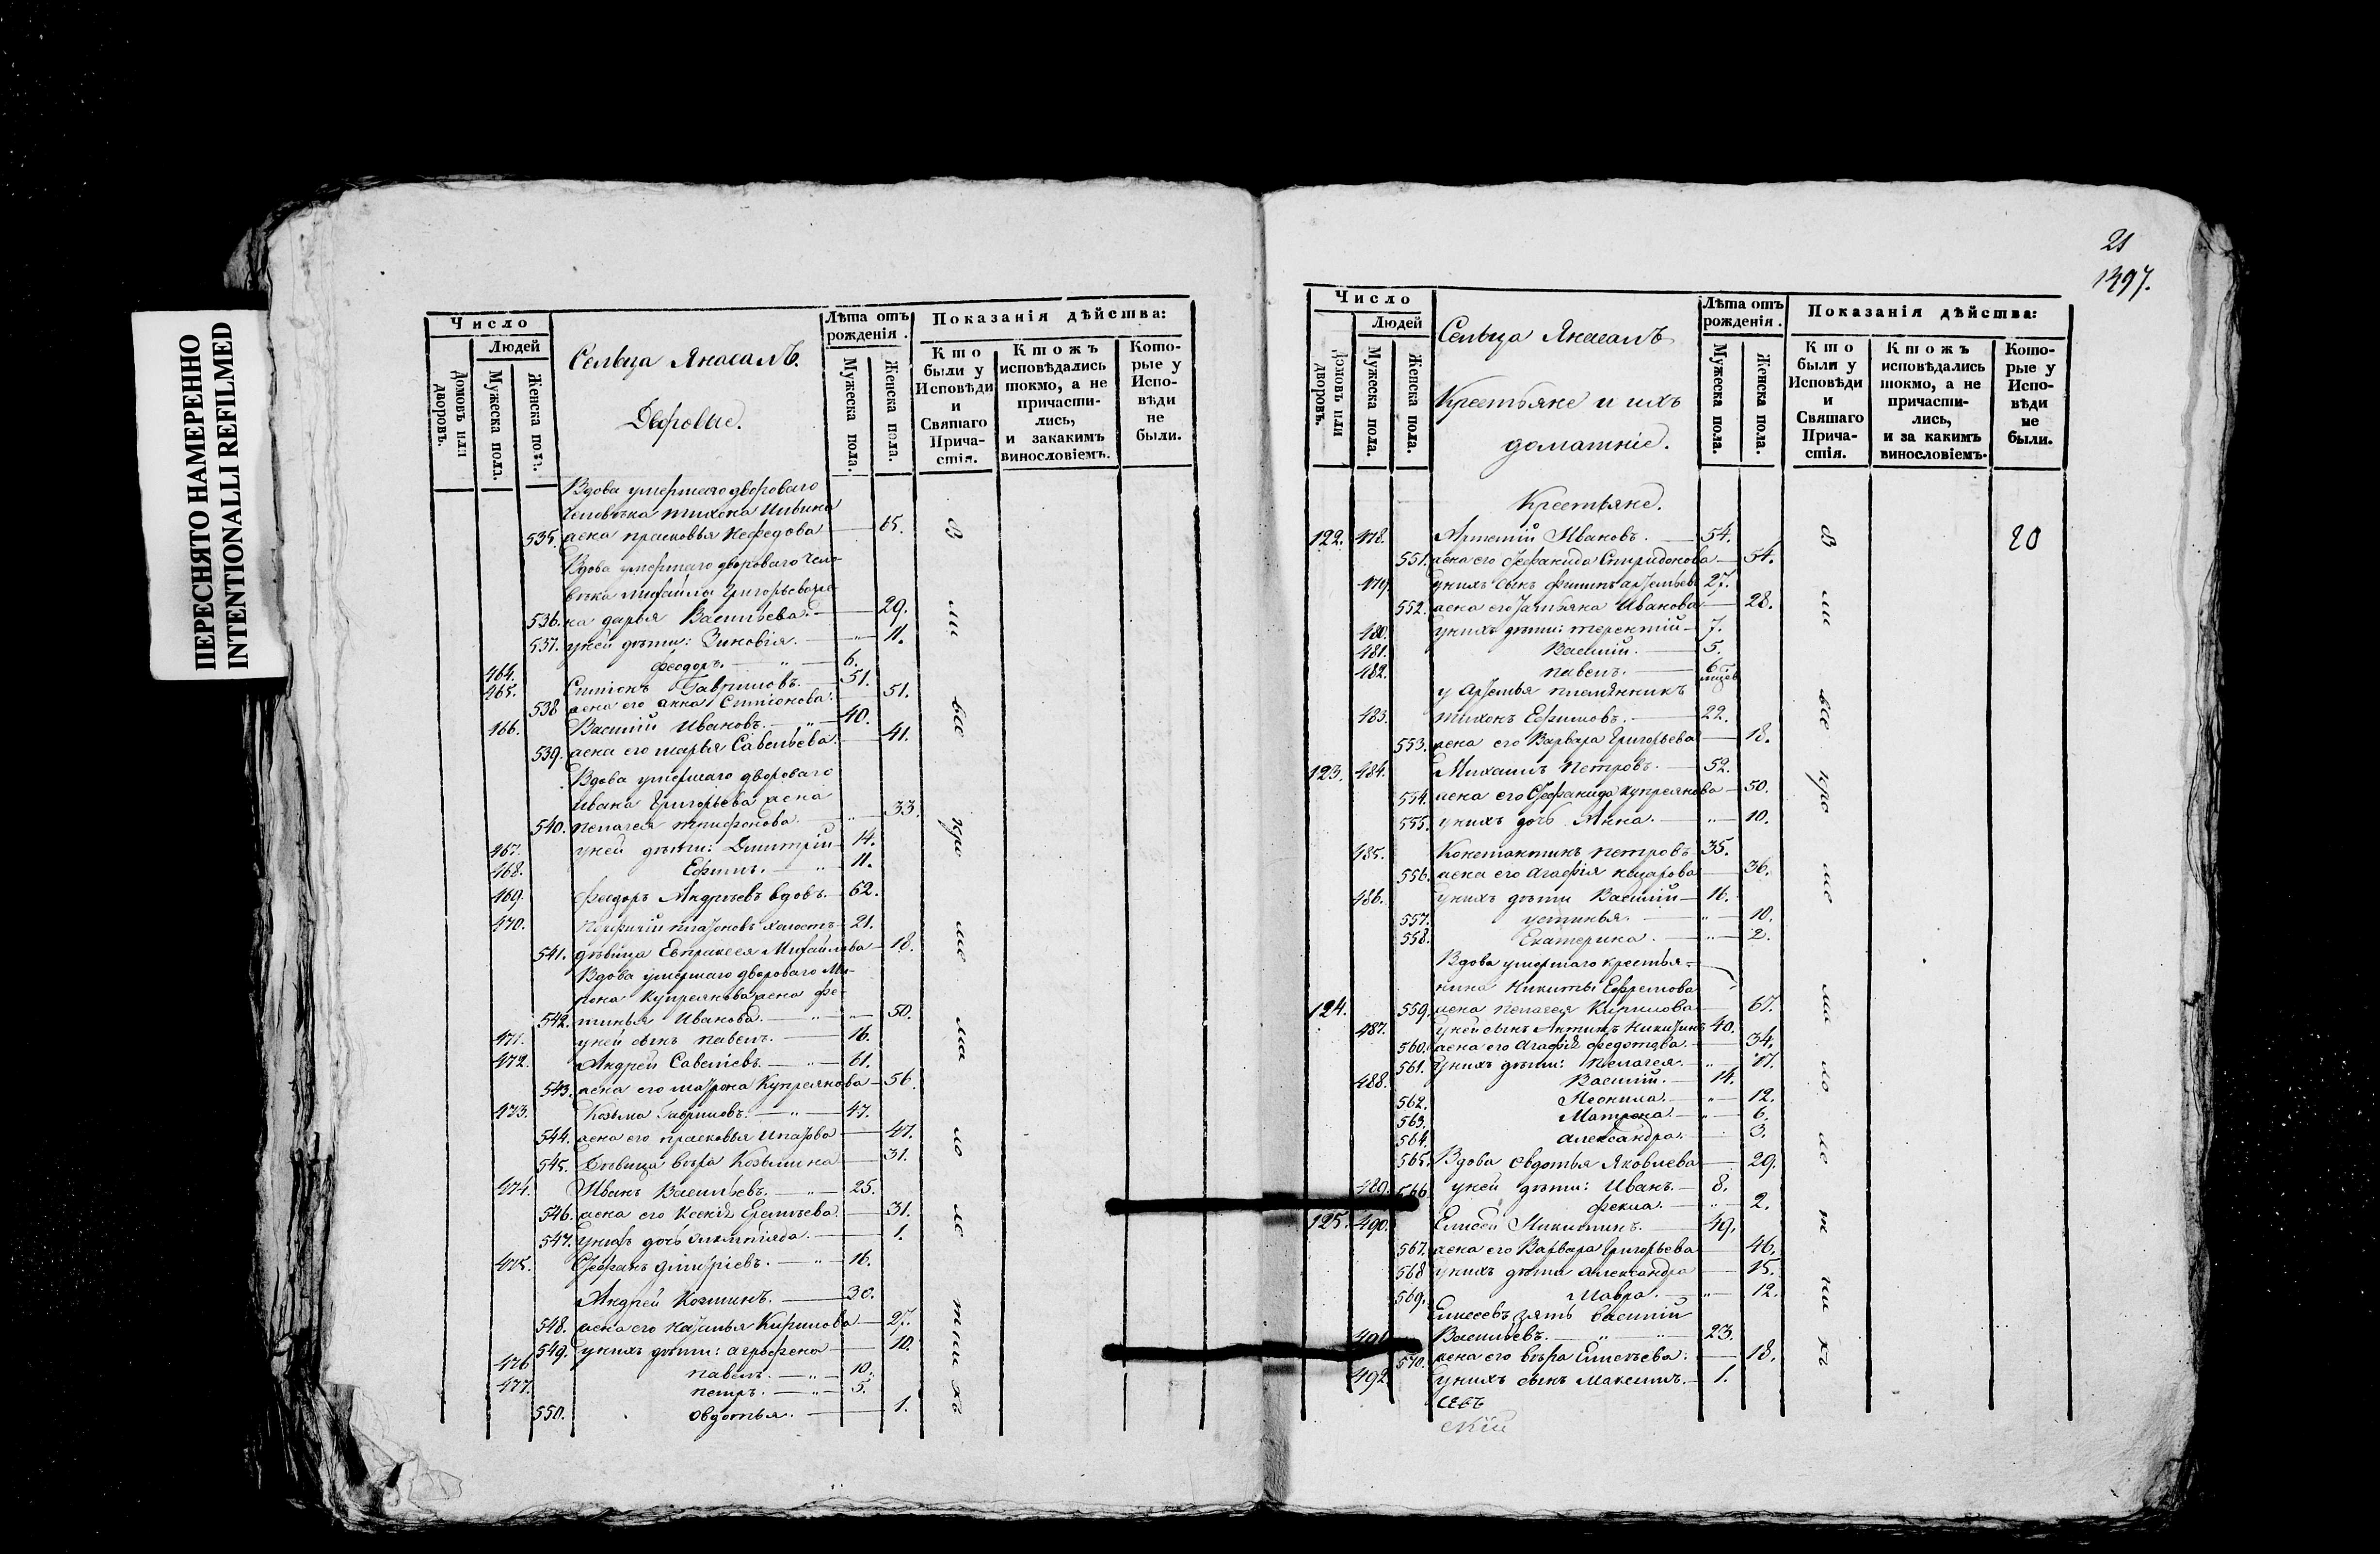 ПЕРЕСНЯТО НАМЕРЕННО
INTENTIONALLI REFILMED
Число
Людей
Домовъ или дворовъ.
Мужеска пола.
Женска пола.
Сельца
Дворовые.
Лѣта отъ рожденія.
Мужеска пола.
Женска пола.
Показанія дѣйства:
Кто были у Исповѣди и Святаго Прича-стія.
Ктожъ исповѣдались токмо, а не причасти-лись, и закакимъ винословіемъ.
Кото-рые у Испо-вѣди не были.
Вдова умершаго двороваго
человѣка Тихона
535. жена Прасковья Нефедова 65.
Вдова умершаго двороваго чело-
вѣка Михайла Григорьева же-
536. на Дарья Васильева 29.
537. у ней дѣти: Зиновія. 11.
464. Феодоръ. 6.
465. Гавриловъ. 51.
538 жена его Анна 51.
466. Василій Ивановъ. 40.
539. жена его Марья Савельева. 41.
Вдова умершаго двороваго
Ивана Григорьева жена
540. Пелагея Трифонова. 33.
467. у ней дѣти: Димитрій 14.
468. Ефимъ. 11.
469. Феодоръ Андреевъ вдовъ. 62.
470. Платоновъ холостъ 21.
541. дѣвица Евпраксея Михайлова 18.
Вдова умершаго двороваго Ми-
рона Купреянова жена Фе-
542. тинья Иванова. 50.
471. у ней сынъ Павелъ. 16.
472. Андрей Савельевъ. 61.
543. жена его Матрона Купреянова 56.
473. Козьма Гавриловъ. 47.
544. жена его Прасковья Ипатова 47.
545. Дѣвица Вѣра Козьмина 31.
474. Иванъ Васильевъ. 25.
546. жена его Ксенія 31.
547. у нихъ дочь Олимпіяда. 1.
475. Стефанъ Димитріевъ. 16.
Андрей Козминъ. 30.
548. жена его Наталья Кирилова 27.
549. у нихъ дѣти: Агрофена 10.
476 Павелъ. 10.
477. Петръ. 5.
550. Овдотья. 1.
21
1397.
Число
Людей
Домовъ или дворовъ.
Мужеска пола.
Женска пола.
Сельца
Крестьяне и ихъ
домашніе.
Лѣта отъ рожденія.
Мужеска пола.
Женска пола.
Показанія дѣйства:
Кто были у Исповѣди и Святаго Прича-стія.
Ктожъ исповѣдались токмо, а не причасти-лись, и за какимъ винословіемъ.
Кото-рые у Испо-вѣди не были.
Крестьяне.
122. 478. Артемій Ивановъ. 54. 20
551. жена его Стефанида Спиридонова 54.
479. у нихъ сынъ Филипъ Артемьевъ 27.
552. жена его Татьяна Иванова 28.
480. у нихъ дѣти: Терентій 7.
481. Василій. 5.
482. Павелъ. 6
у Артемья племянникъ
483. Тихонъ Ефимовъ. 22.
553. жена его Варвара Григорьева 18.
123. 484. Михаилъ Петровъ. 52.
554. жена его Стефанида Купреянова 50.
555. у нихъ дочь Анна. 10.
485. Константинъ Петровъ 35.
556. жена его Агафія Назарова 36.
486. у нихъ дѣти Василій 16.
557. Устинья. 10.
558. Екатерина. 2.
Вдова умершаго крестья-
нина Никиты Ефремова
124. 559. жена Пелагея Кирилова 67.
487. у ней сынъ Антипъ Никитинъ 40.
560. жена его Агафія Федотова. 34.
561. у нихъ дѣти: Пелагея. 17.
488. Василій. 14.
562. Неонила. 12.
563. Матрона. 6.
564. Александра. 3.
565. Вдова Овдотья Яковлева 29.
489. у ней дѣти: Иванъ. 8.
566 Фекла. 2.
125. 490. Елисей Никитинъ. 49.
567. жена его Варвара Григорьева 46.
568 у нихъ дѣти Александра 15.
569. Мавра. 12.
Елисеевъ зять Василій
491. Васильевъ. 23.
570. жена его Вѣра Елисѣева. 18.
492. у нихъ сынъ Максимъ. 1.